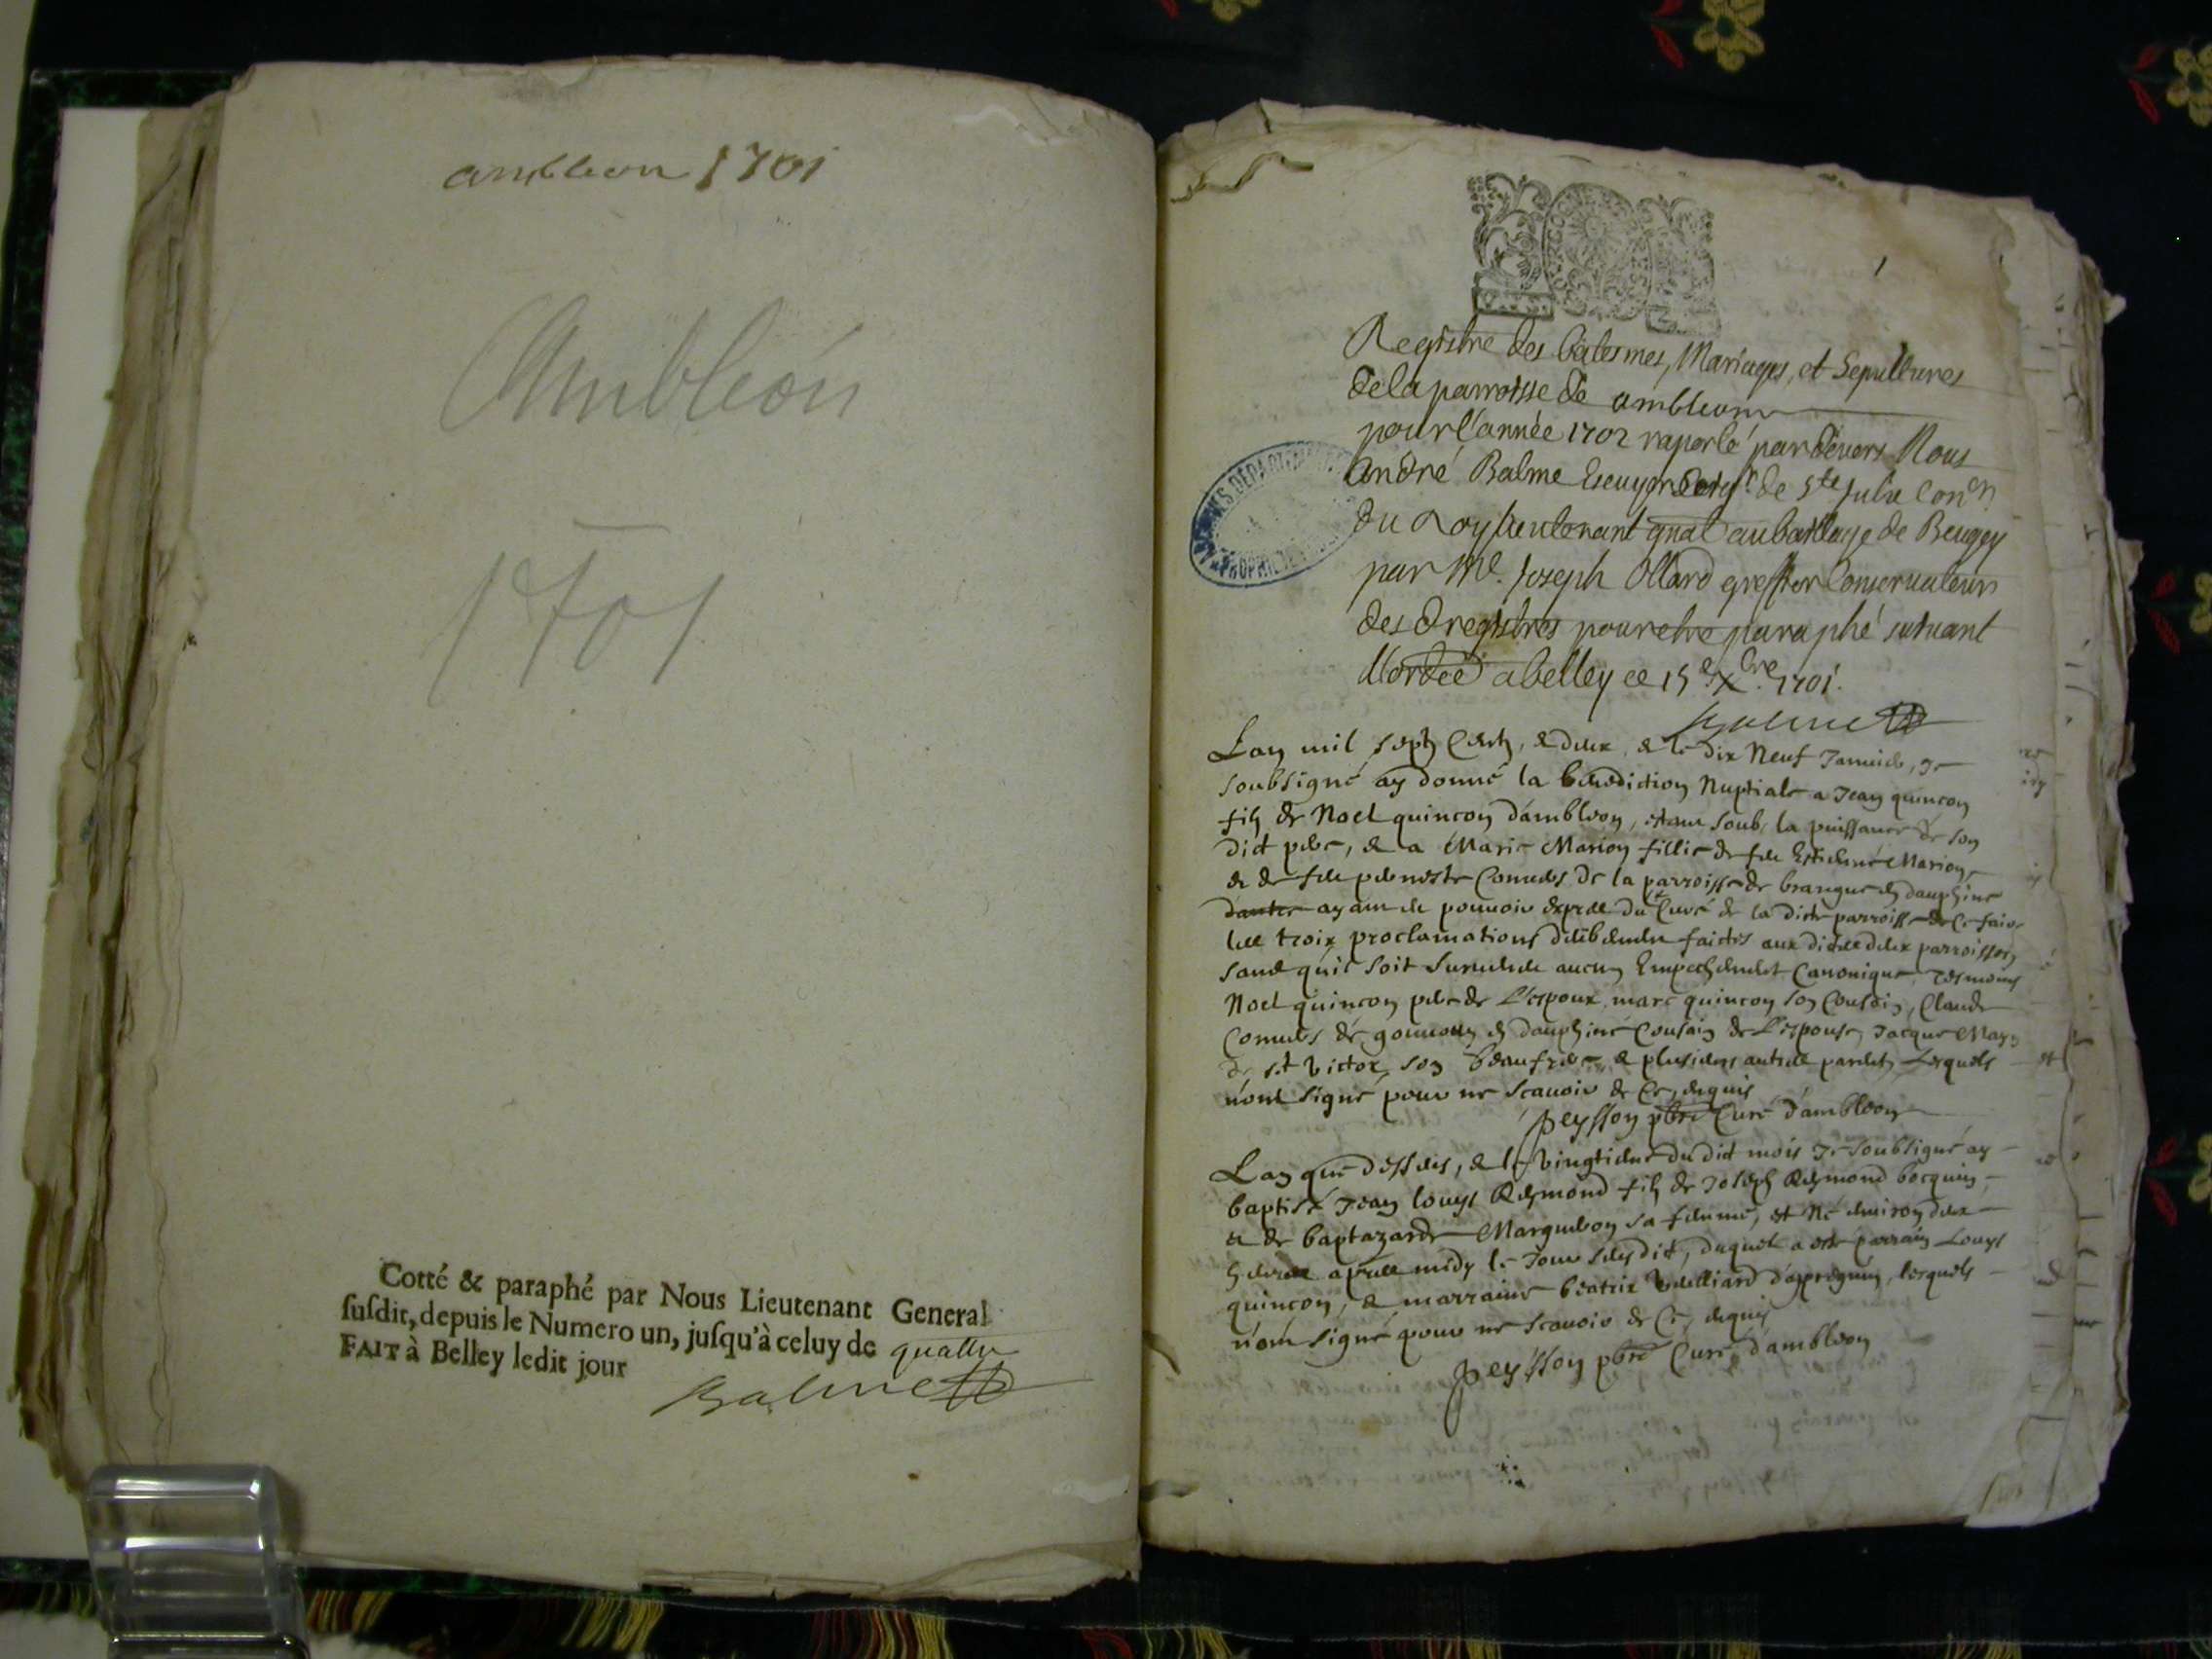 ambleon 1701
Ambléon
1701
Cotté & paraphé par Nous Lieutenant General
susdit, depuis le Numero un, jusqu'à celuy de quattre
FAIT à Belley ledit jour
Balme
1
Registre des batesmes, Mariages, et Sepultures
de la parroisse de ambleon
pour l'année 1702 raporté pardevers Nous
André Balme Escuyer Seigr. de Ste Julie Coner.
du Roy lieutenant gnal au bailliage de Beugey
par Me. Joseph Ollard greffier Conservateur
des dregistres pour etre paraphé suivant
a belley ce 15e Xbre 1701.
Balme
Lan mil sept Cent, & deux, & le dix Neuf Janvier, Je
soubsigné ay donné la benediction Nuptiale a Jean quincon
fils de Noel quincon d'ambleon, estant soub, la puissance de son
dict pere, & a Marie Marion fillie de feu Estienne Marion,
& de feue pernette Comubs de la parroisse de brangue en dauphine
ayant eu pouvoir expres du Curé de la dicte parroisse de Ce faire
les troix proclamations faictes aux dictes deux parroisses
sans quil soit survenu aucun Empechement Canonique, Tesmoins
Noel quincon pere de L'espoux, marc quincon son Cousin, Claude
Comubs de en dauphiné Cousin de L'espouse, Jacque
de st Victor, son beaufrere & plusieurs autres parents, Lesquels
n'ont signé pour ne scavoir de Ce, enquis
peysson pbre Curé d'ambleon
Lan que dessus, & le vingtieme du dict mois Je soubsigné ay
baptisé Jean louys Reymond fils de Joseph Reymond bocquin,
& de baptazarde sa femme, et Né environ deux
heures apres midy le Jour susdict, duquel a esté parrain Louys
quincon, & marraine beatrix lesquels
n'ont signé pour ne scavoir de Ce, enquis
peysson pbre Curé d'ambleon